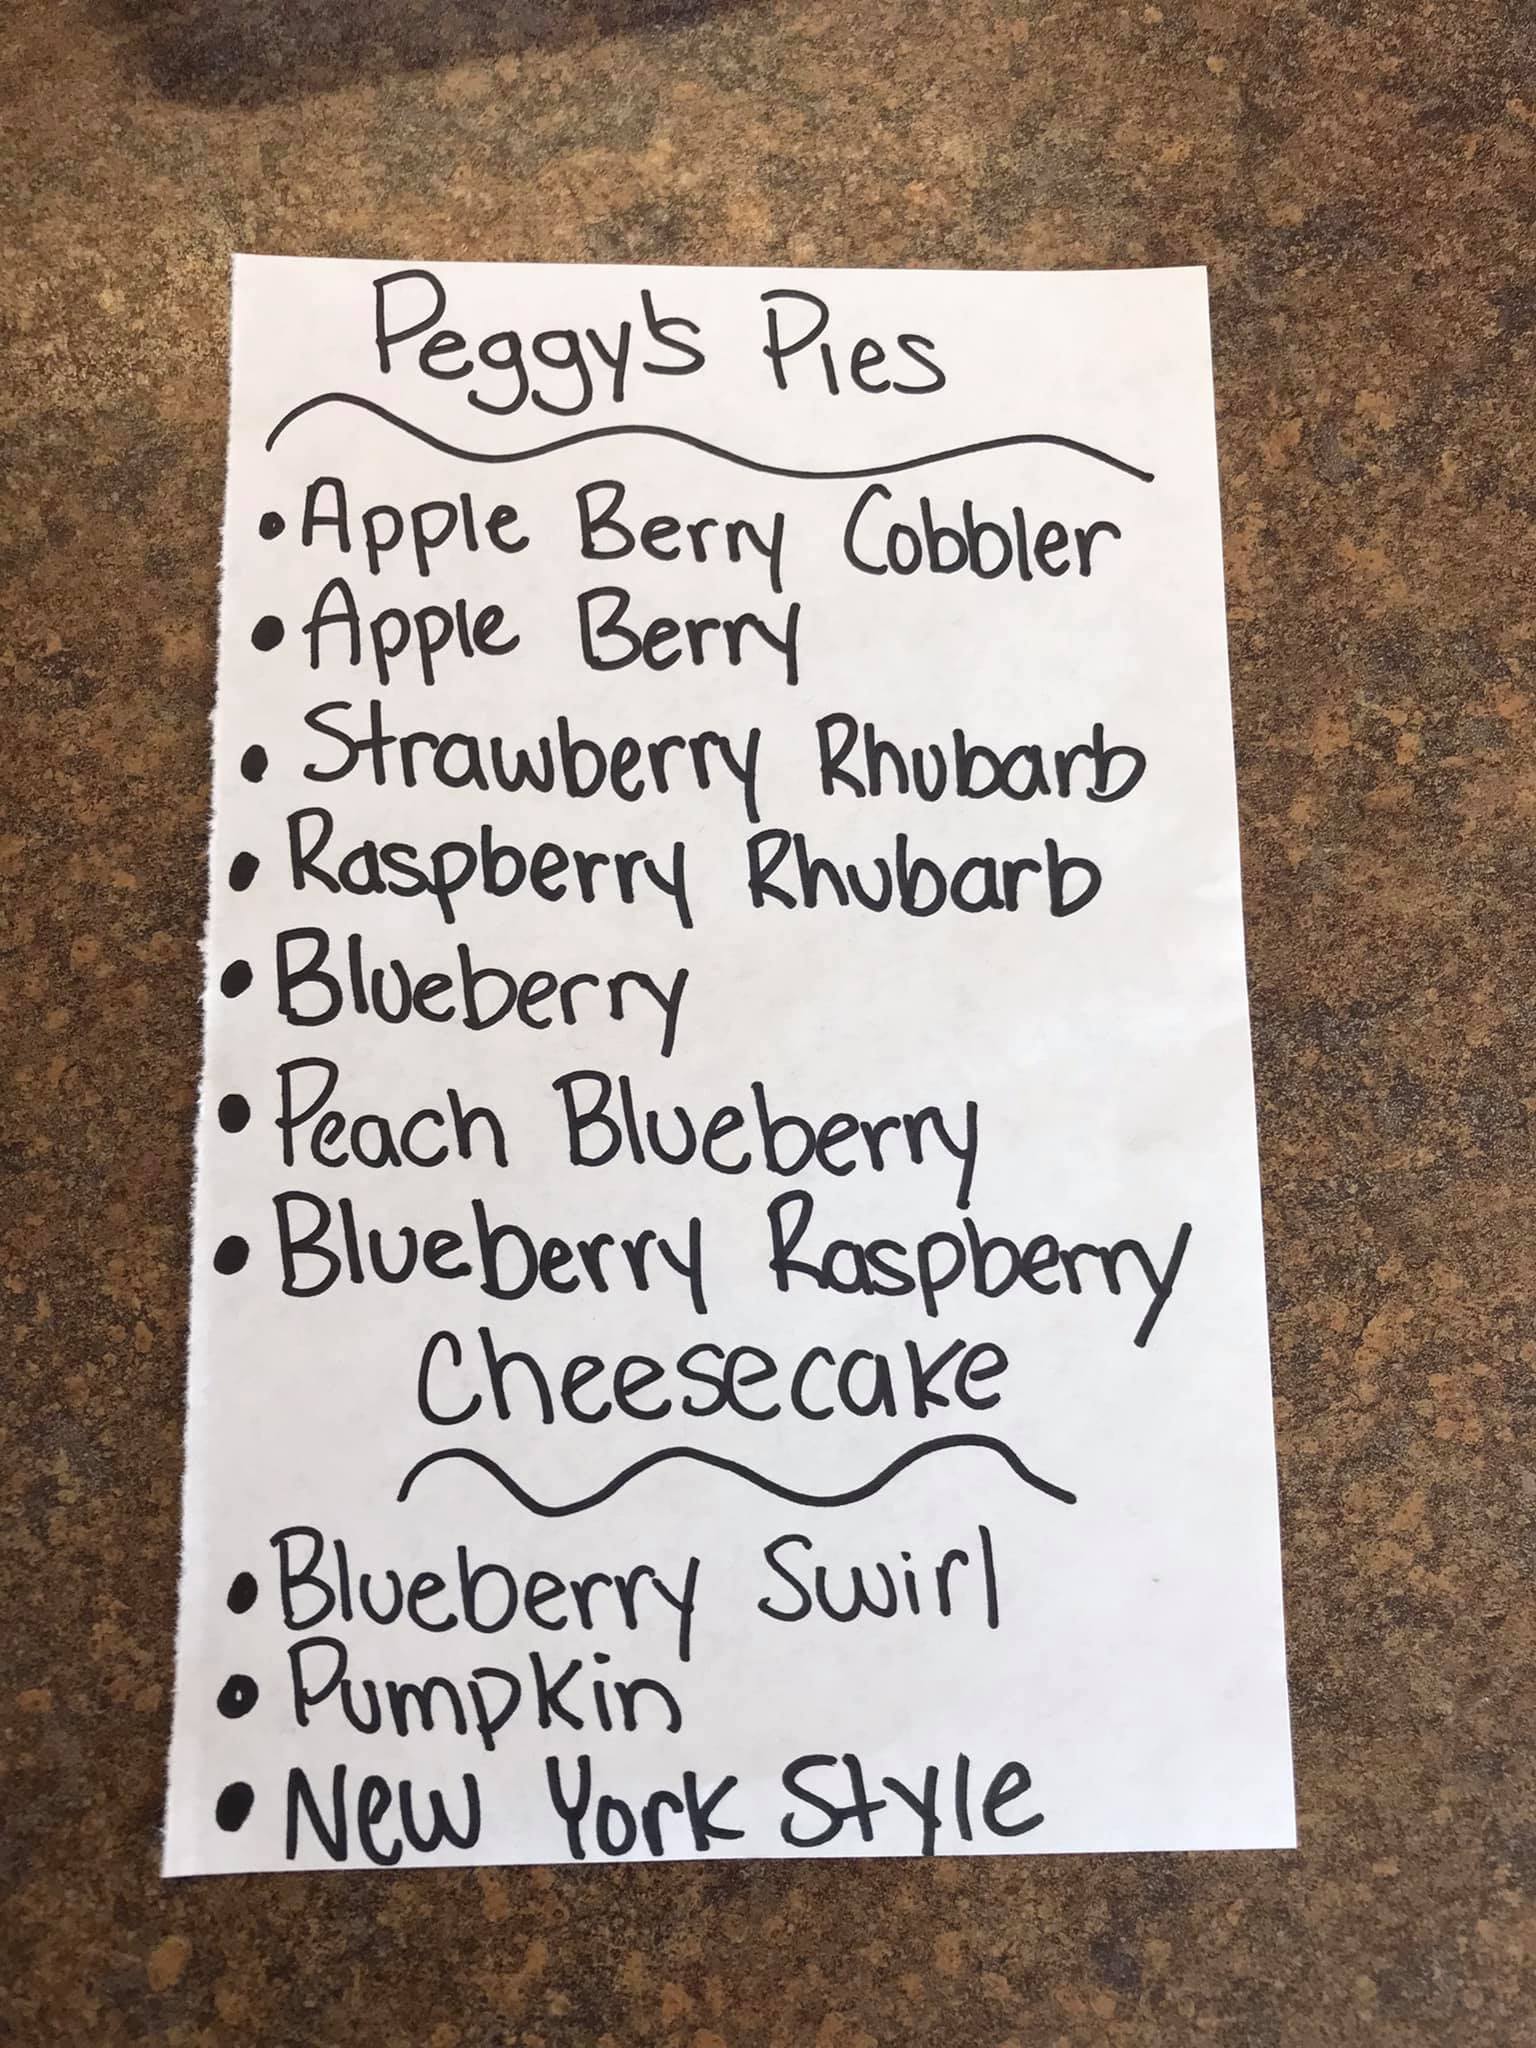 Peggy's Pies
• Apple Berry Cobbler
• Apple Berry
• Strawberry Rhubarb
• Raspberry Rhubarb
• Blueberry
• Peach Blueberry
• Blueberry Raspberry
Cheesecake
• Blueberry Swirl
• Pumpkin
• New York Style